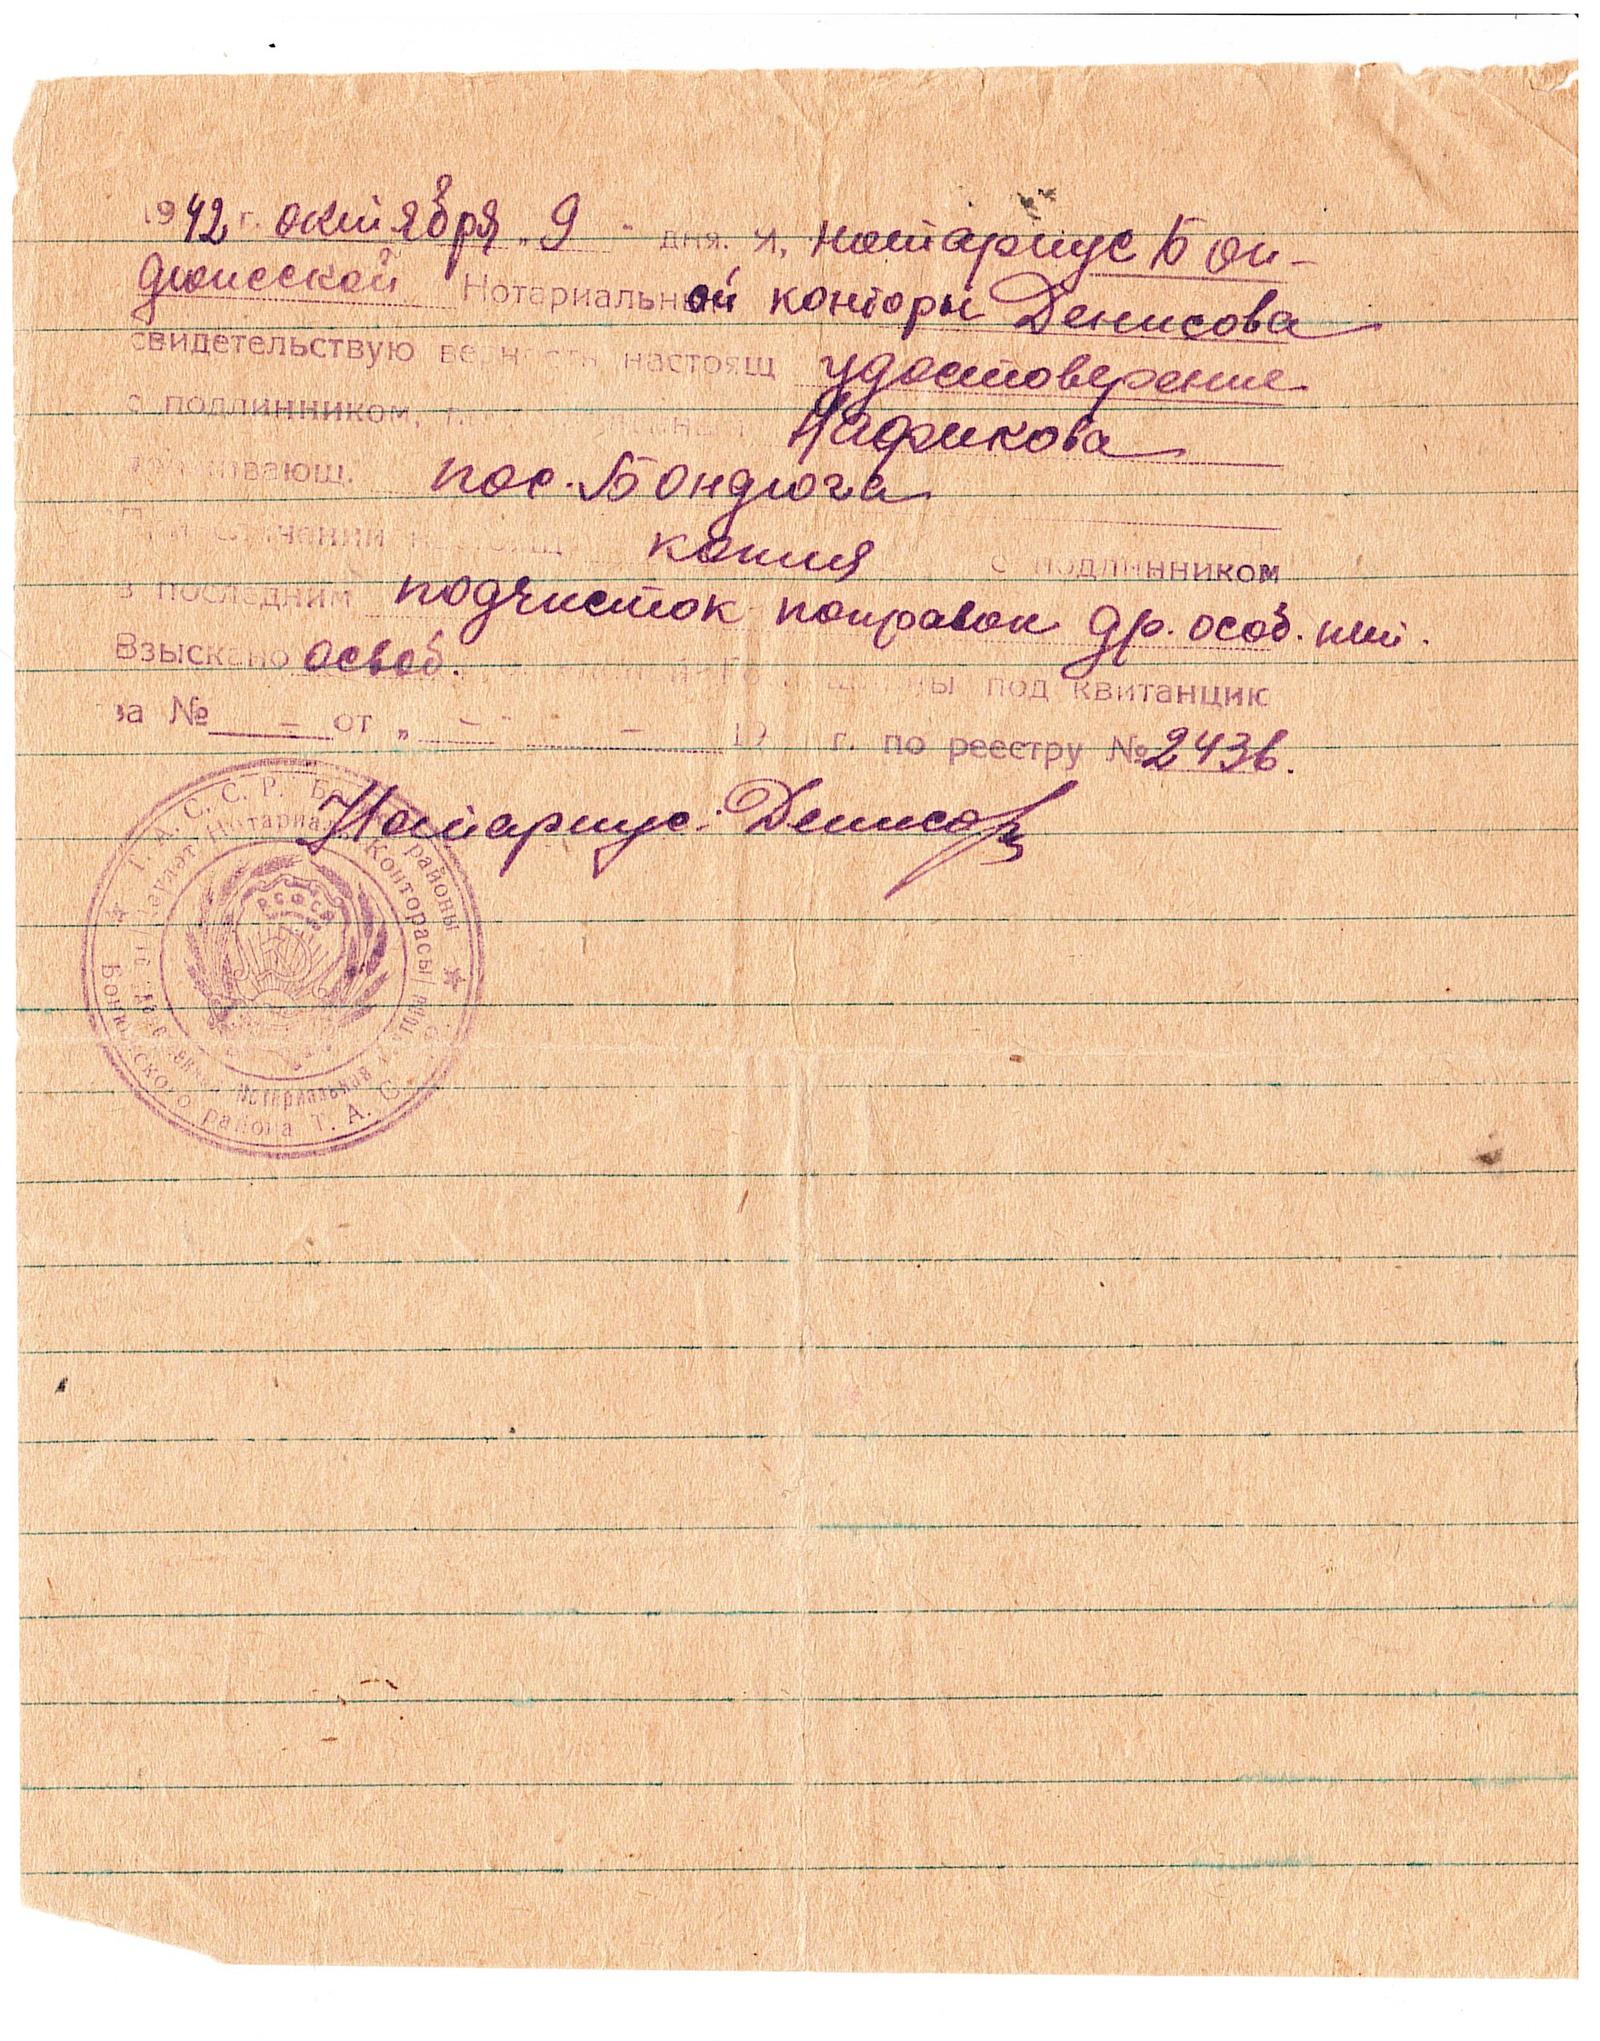 1942 г. октября „9" дня. Я, нотариус Бон-
дюжской Нотариальной конторы Денисова
свидетельствую верность настоящ удостоверение
с подлинником, Нафикова
пос. Бондюга
При сличении настоящ копия с подлинником
в последним подчисток поправок др. особ. нет.
Взыскано освоб. под квитанцию
за № – от „–" – 19 г. по реестру № 2436.
Нотариус: Денисова
Т. А. С. С. Р. районы
Нотариаль Конторасы
РСФСР
нотариальная
района Т. А. С.